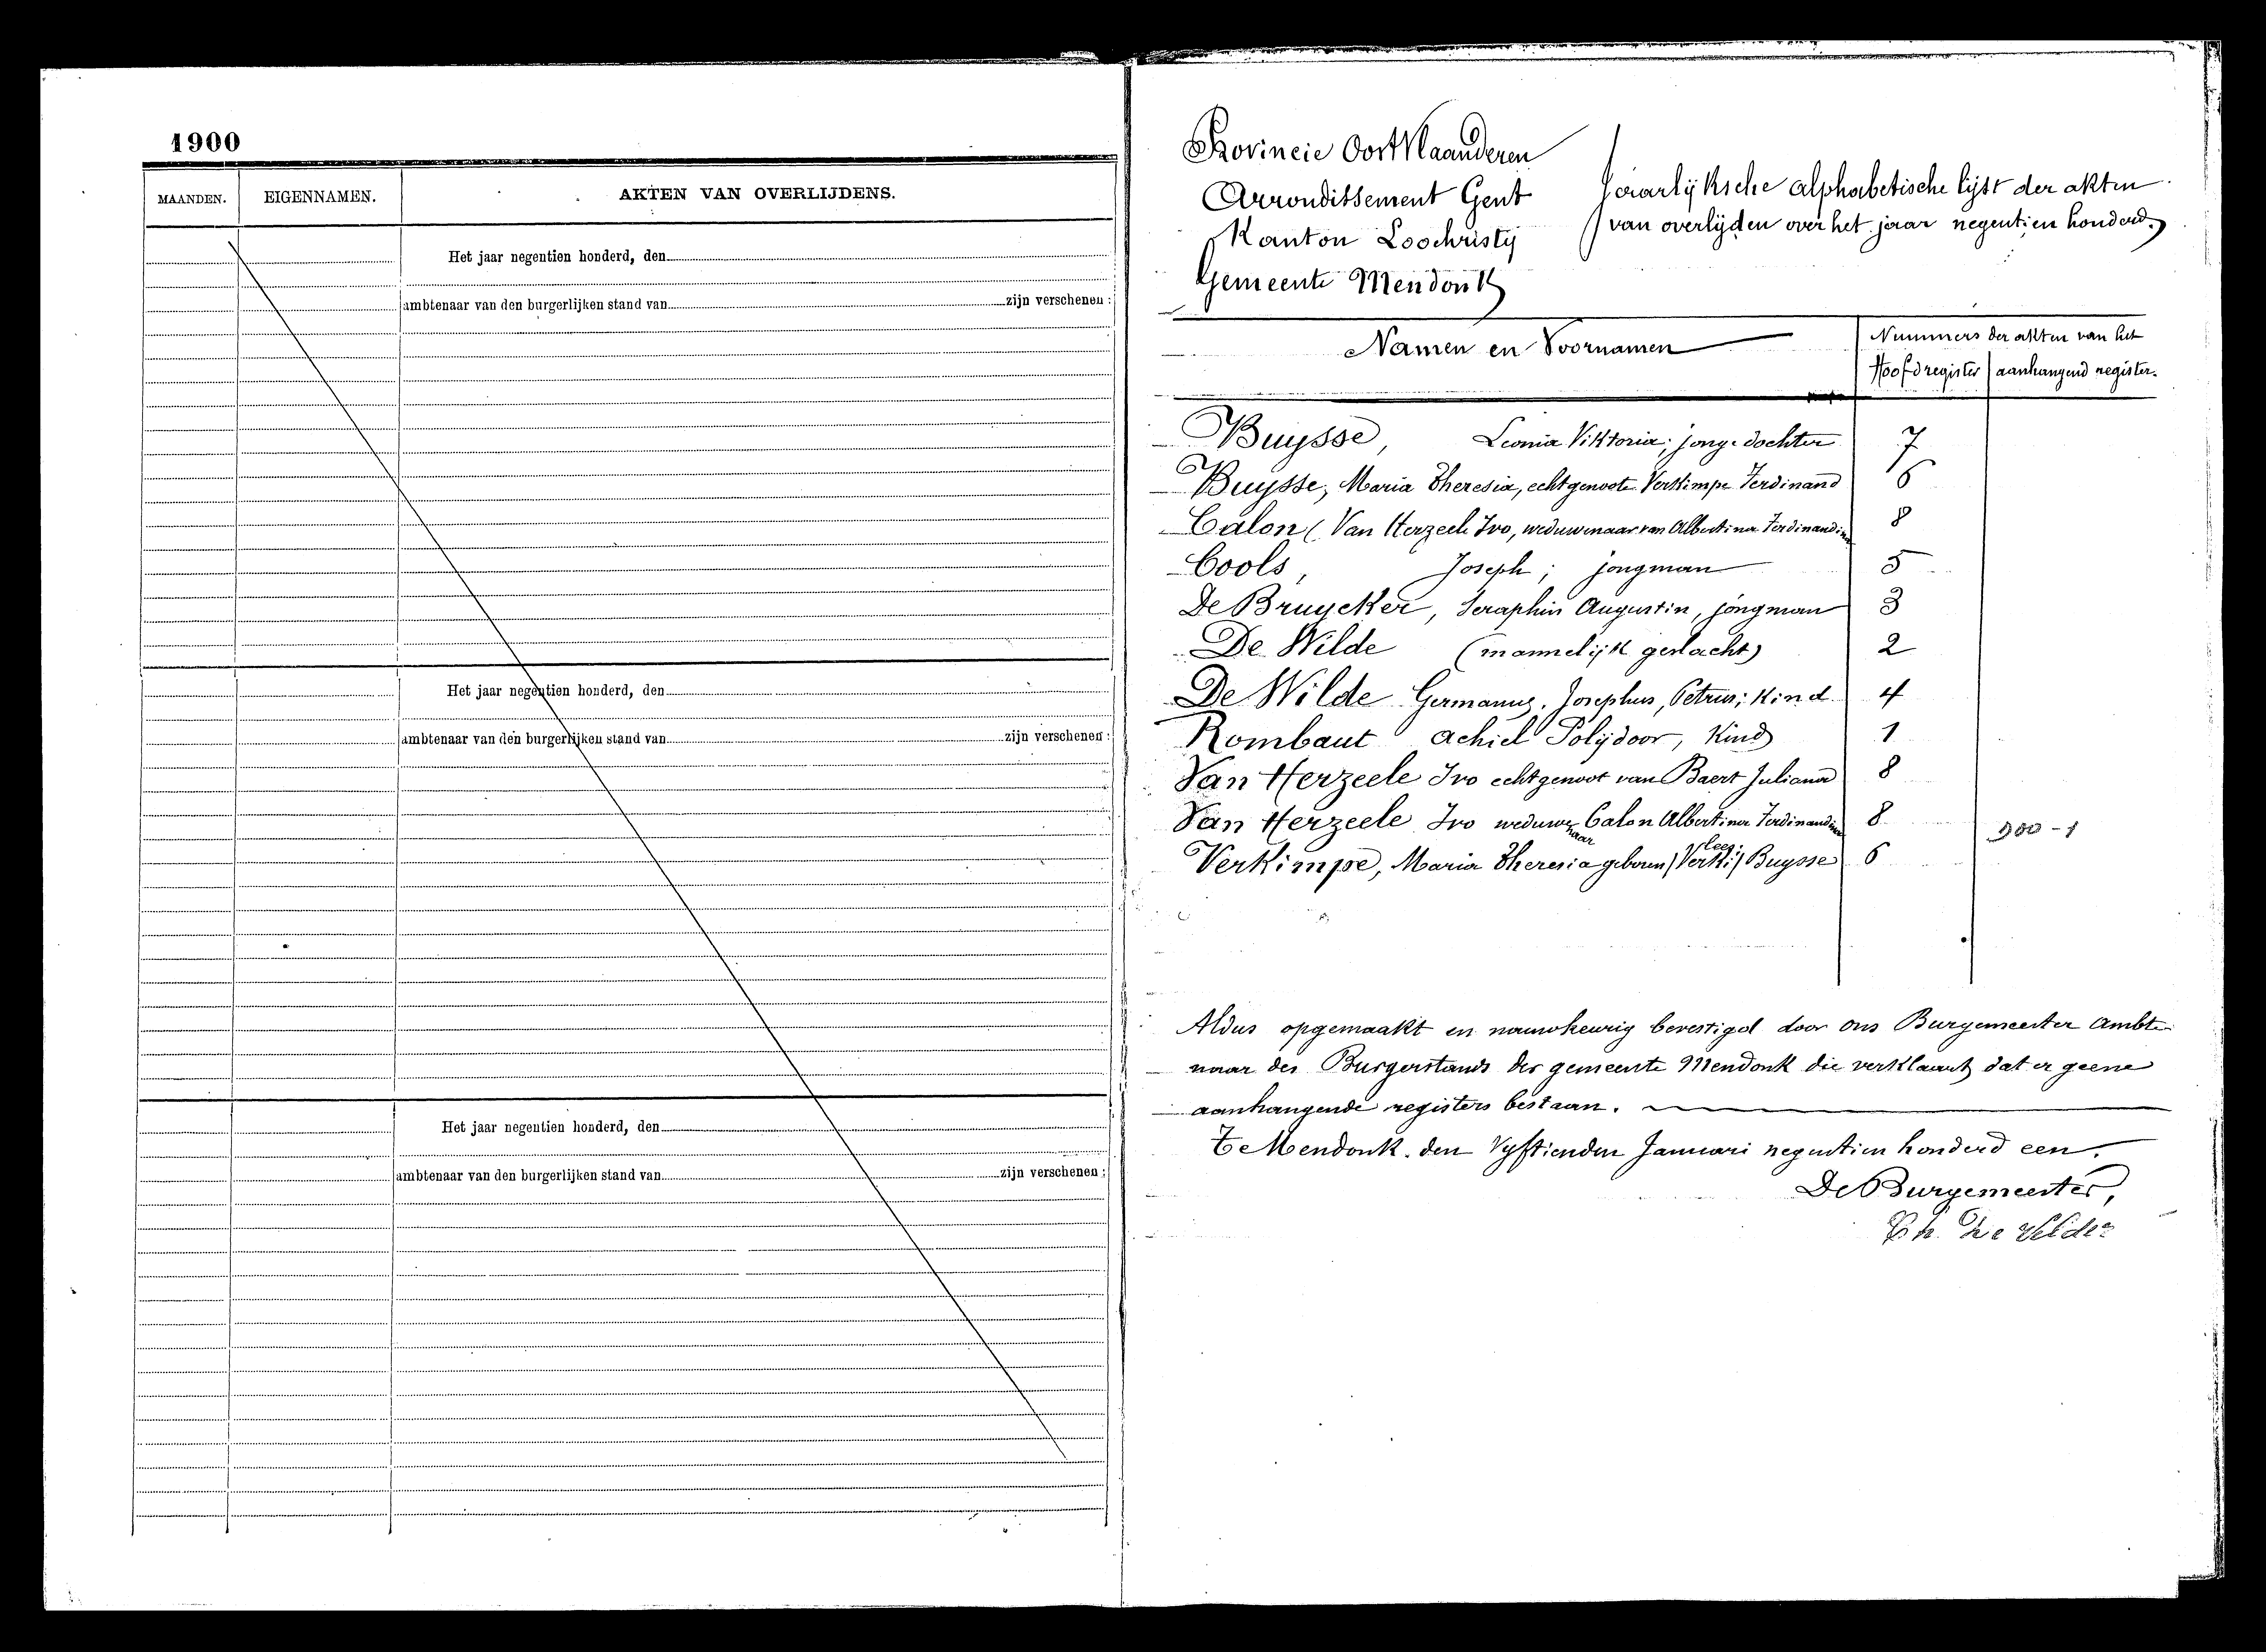 1900
MAANDEN. EIGENNAMEN. AKTEN VAN OVERLIJDENS.
Het jaar negentien honderd, den
ambtenaar van den burgerlijken stand van zijn verschenen :
Het jaar negentien honderd, den
ambtenaar van den burgerlijken stand van zijn verschenen :
Het jaar negentien honderd, den
ambtenaar van den burgerlijken stand van zijn verschenen :
Provincie OostVlaanderen
Arrondissement Gent
Kanton Loochristij
Gemeente Mendonk
Jaarlijksche alphabetische lijst der akten
van overlijden over het jaar negentien honderd.
Namen en Voornamen
Nummers der akten van het
Hoofdregister aanhangend register.
Buysse, Leonia Viktoria; jonge dochter 7
Buysse, Maria Theresia, echtgenoote Verkimpe Ferdinand 6
Calon (Van Herzeele Ivo, weduwenaar van Albertina Ferdinandina 8
Cools, Joseph; jongman 5
De Bruycker, Seraphin Augustin, jongman 3
De Wilde (mannelijk geslacht) 2
De Wilde Germanus, Josephus, Petrus; Kind 4
Rombaut Achiel Polydoor, Kind 1
Van Herzeele Ivo echtgenoot van Baert Juliana 8
Van Herzeele Ivo weduwenaar Calon Albertina Ferdinandina 8
900 - 1
Verkimpe, Maria Theresia geboren / Verki / lees: Buysse 6
Aldus opgemaakt en nauwkeurig bevestigd door ons Burgemeester Ambte-
naar des Burgerstands der gemeente Mendonk die verklaart dat er geene
aanhangende registers bestaan.
Te Mendonk. den Vyftienden Januari negentien honderd een.
De Burgemeester,
De Velder